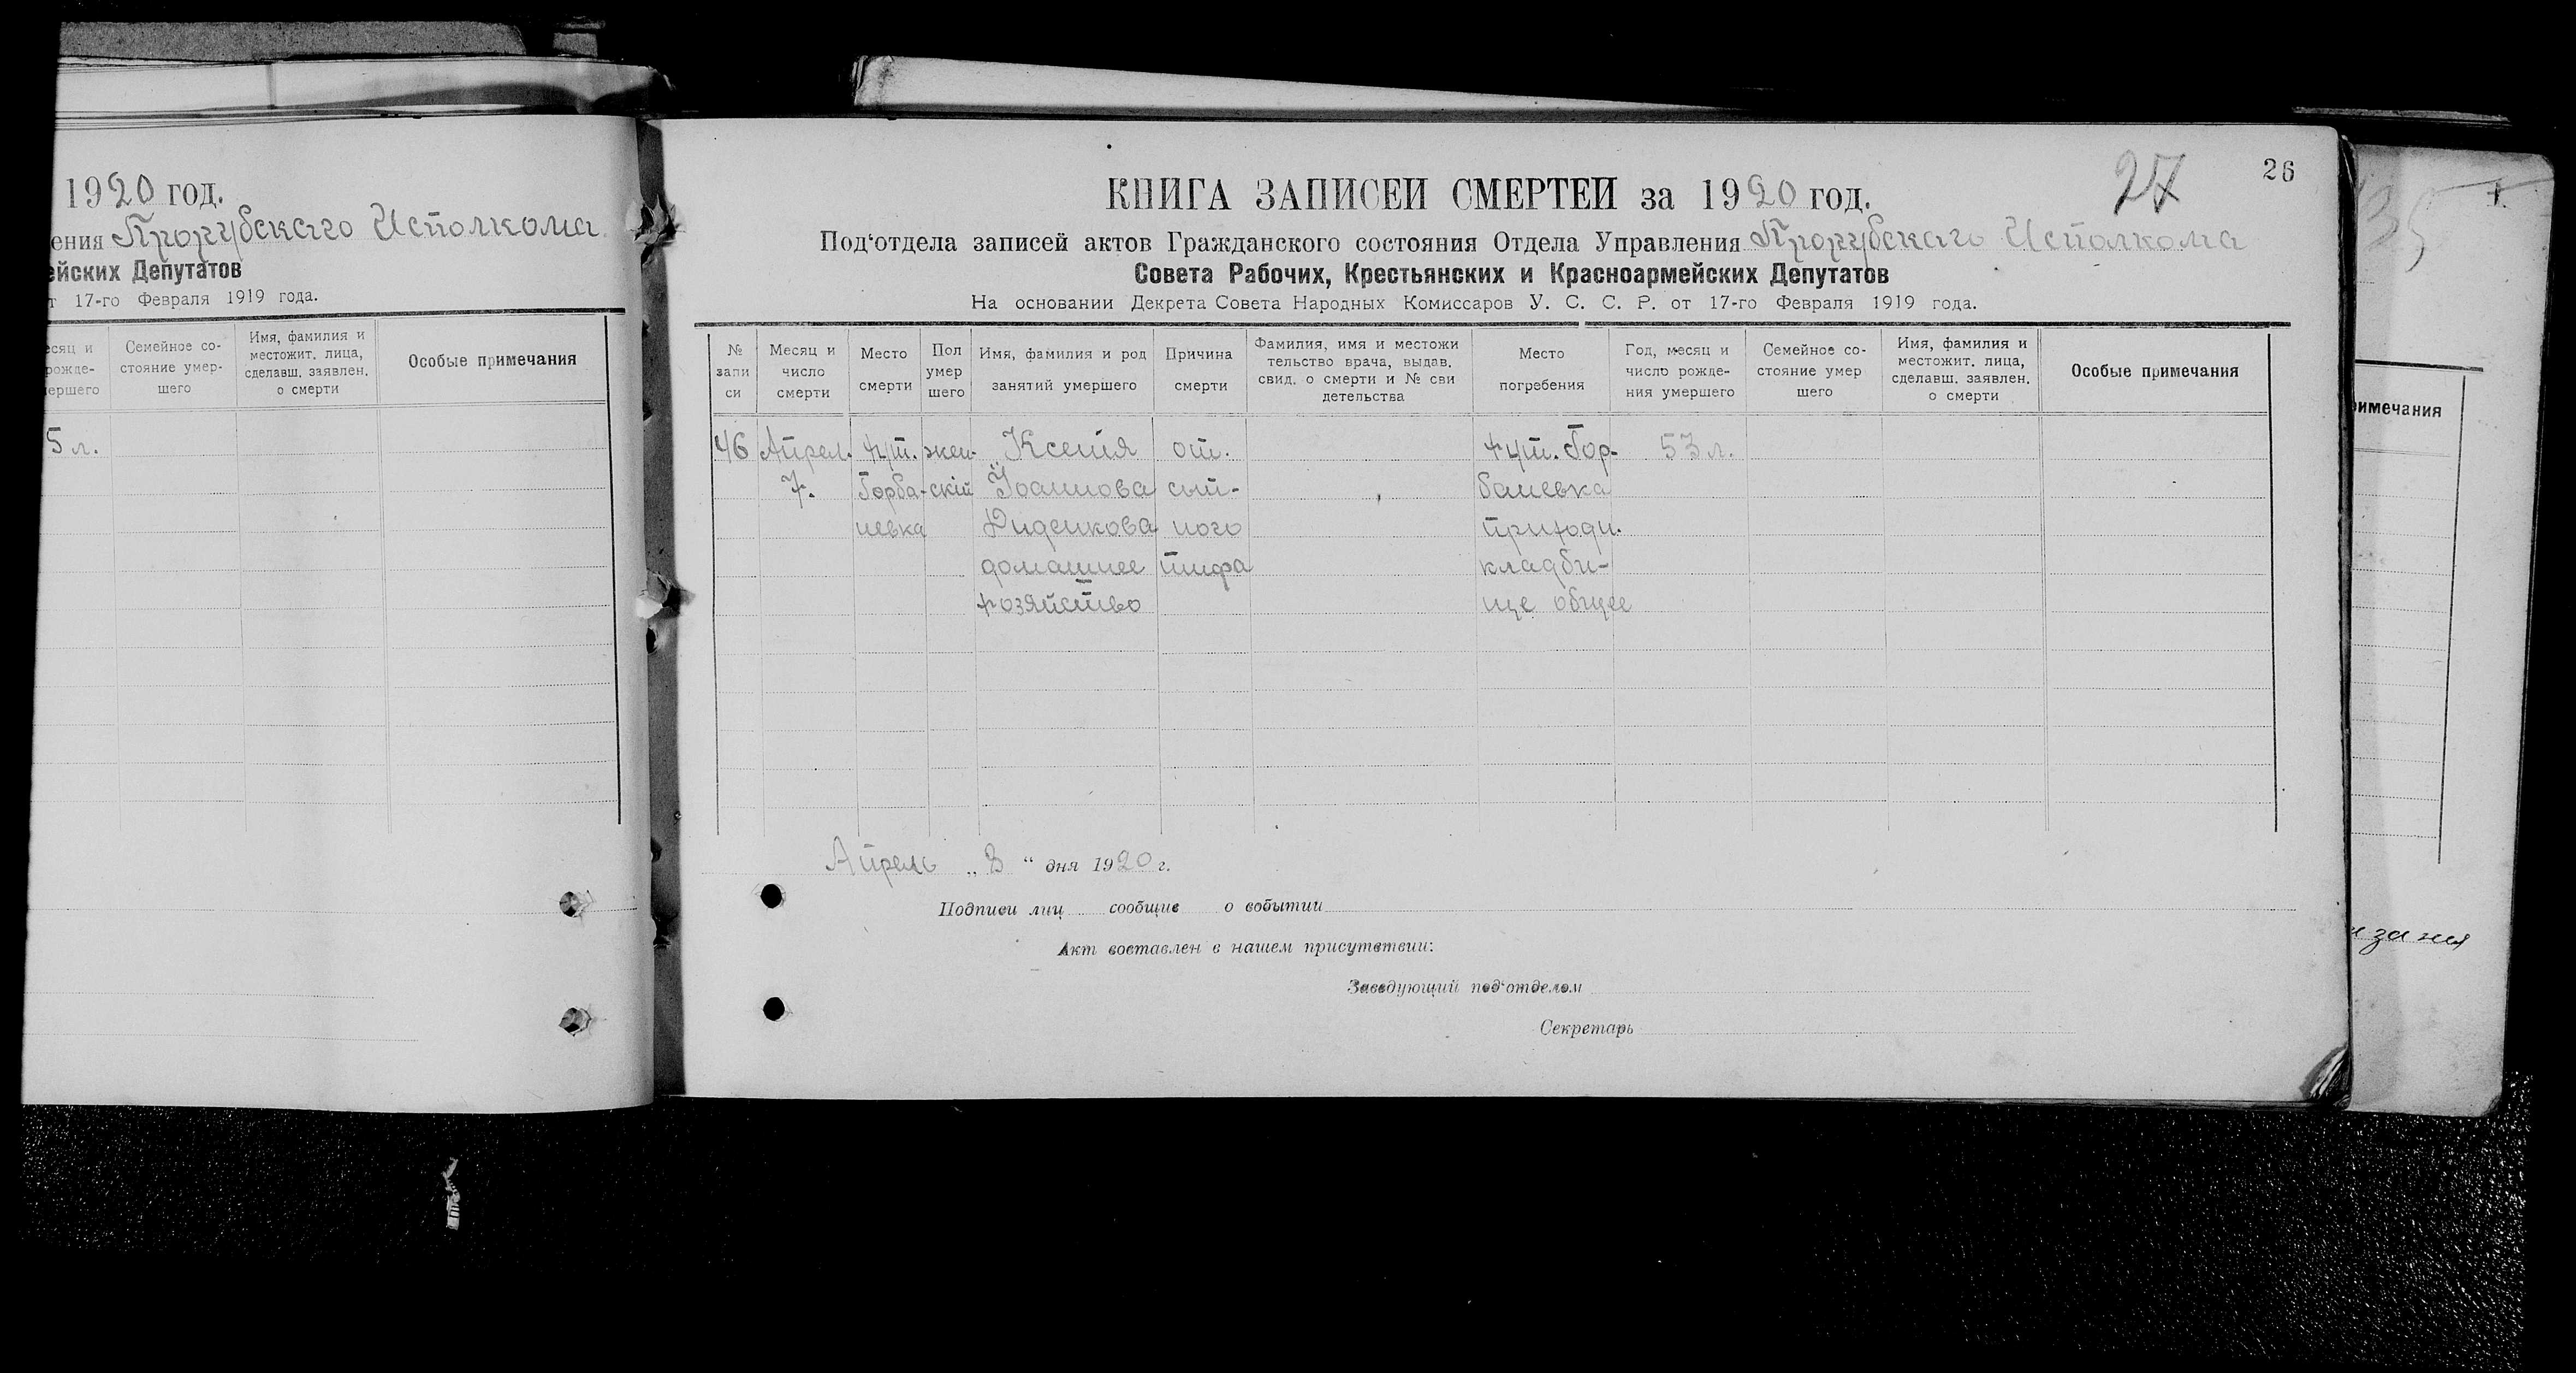 1920 год.
ения Прорубскаго Исполкома
ейских Депутатов
т 17-го Февраля 1919 года.
есяц и
рожде-
ершего
Семейное со-
стояние умер-
шего
Имя, фамилия и
местожит. лица,
сделавш. заявлен.
о смерти
Особые примечания
5 л.
26
27
КНИГА ЗАПИСЕЙ СМЕРТЕЙ за 1920 год.
Под'отдела записей актов Гражданского состояния Отдела Управления Прорубскаго Исполкома
Совета Рабочих, Крестьянских и Красноармейских Депутатов
На основании Декрета Совета Народных Комиссаров У. С. С. Р. от 17-го Февраля 1919 года.
№
запи
си
Месяц и
число
смерти
Место
смерти
Пол
умер
шего
Имя, фамилия и род
занятий умершего
Причина
смерти
Фамилия, имя и местожи
тельство врача, выдав.
свид. о смерти и № сви
детельства
Место
погребения
Год, месяц и
число рожде-
ния умершего
Семейное со-
стояние умер
шего
Имя, фамилия и
местожит. лица,
сделавш. заявлен.
о смерти
Особые примечания
46
Апрел.
7.
хут.
Горба-
невка
жен-
скій
Ксенія
Іоаннова
Диденкова
домашнее
хозяйство
от.
сып-
ного
тифа
хут. Гор-
баневка
приходи.
кладби-
ще общее
53 л.
Апрель „ 8 “ дня 1920 г.
Подписи лиц сообщив о событии
Акт составлен в нашем присутствии:
Заведующий под'отделом
Секретарь
35
имечания